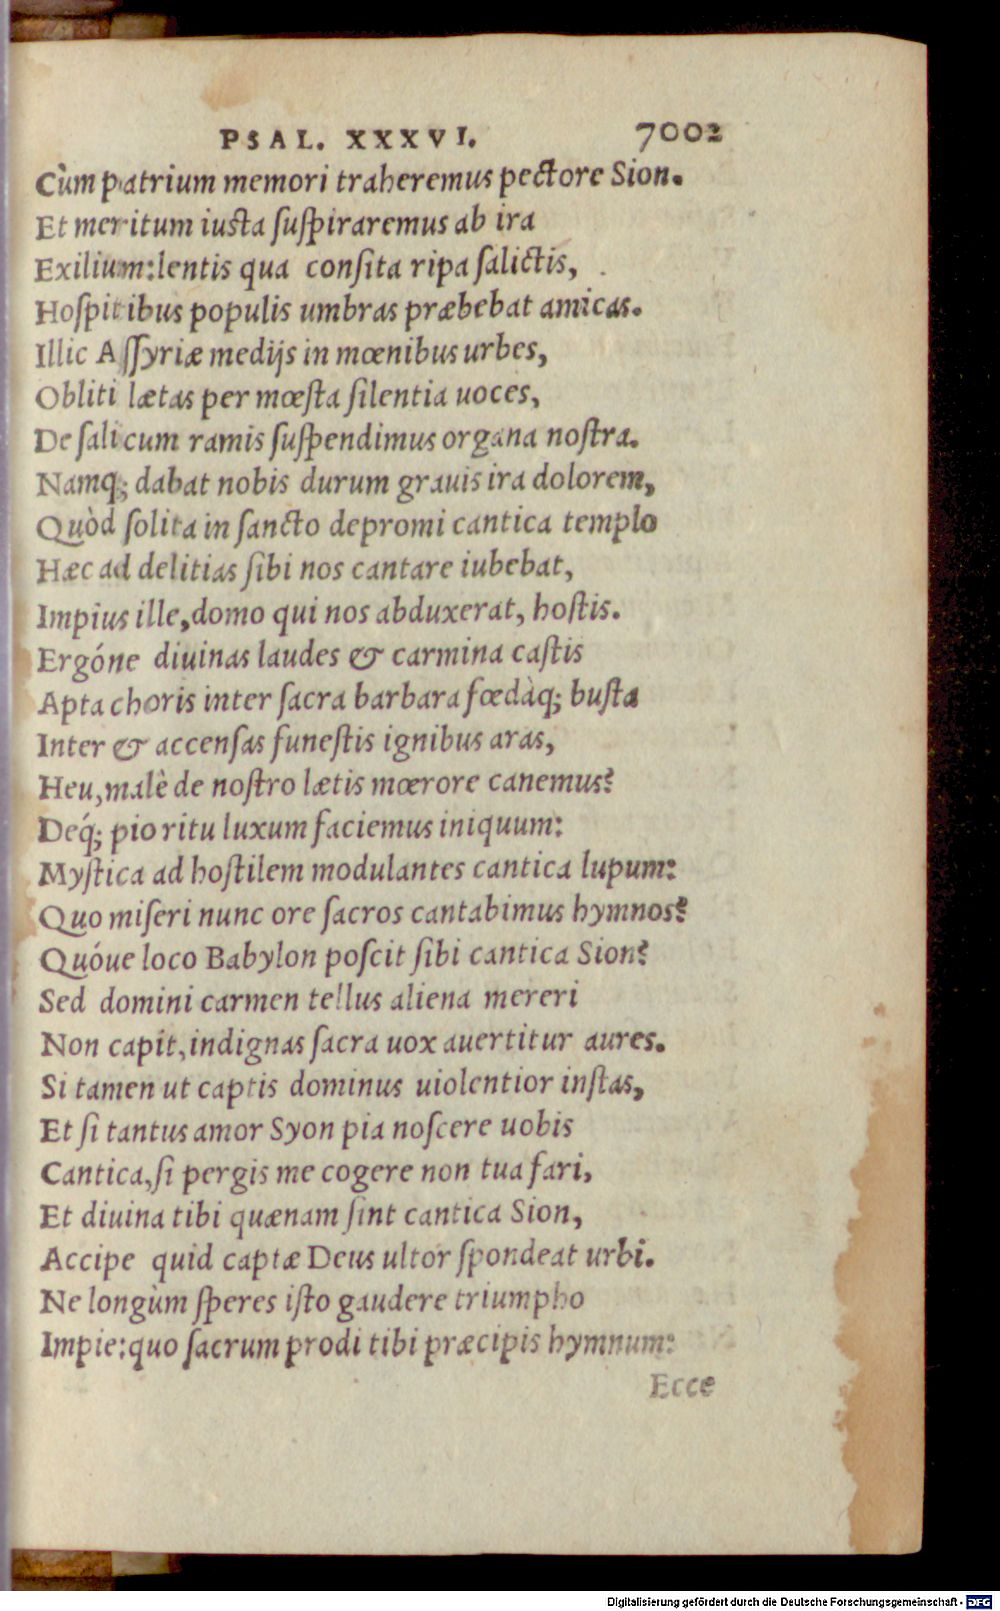 PSAL. XXXVI. 7002
Cùm patrium memori traheremus pectore Sion.
Et meritum iusta ſuſpiraremus ab ira
Exilium: lentis qua conſita ripa ſalictis,
Hoſpitibus populis umbras præbebat amicas.
Illic Aſſyriæ medijs in mœnibus urbes,
Obliti lætas per mœſta ſilentia uoces,
De ſalicum ramis ſuſpendimus organa noſtra.
Namq; dabat nobis durum grauis ira dolorem,
Quòd ſolita in ſancto depromi cantica templo
Hæc ad delitias ſibi nos cantare iubebat,
Impius ille, domo qui nos abduxerat, hoſtis.
Ergóne diuinas laudes & carmina caſtis
Apta choris inter ſacra barbara fœdàq; buſta
Inter & accenſas funeſtis ignibus aras,
Heu, malè de noſtro lætis mœrore canemus?
Deq́; pio ritu luxum faciemus iniquum:
Myſtica ad hoſtilem modulantes cantica lupum:
Quo miſeri nunc ore ſacros cantabimus hymnos?
Quóue loco Babylon poſcit ſibi cantica Sion?
Sed domini carmen tellus aliena mereri
Non capit, indignas ſacra uox auertitur aures.
Si tamen ut captis dominus uiolentior inſtas,
Et ſi tantus amor Syon pia noſcere uobis
Cantica, ſi pergis me cogere non tua fari,
Et diuina tibi quænam ſint cantica Sion,
Accipe quid captæ Deus ultor ſpondeat urbi.
Ne longùm ſperes iſto gaudere triumpho
Impie: quo ſacrum prodi tibi præcipis hymnum:
Ecce
Digitalisierung gefördert durch die Deutsche Forschungsgemeinschaft - DFG